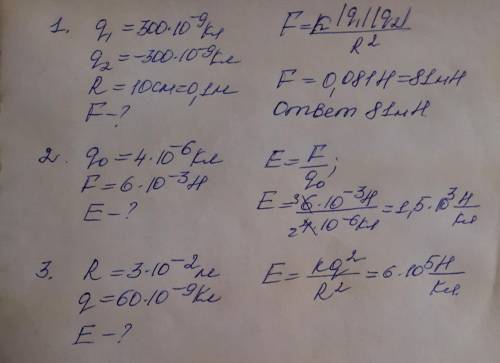 1. q₁ = 300·10⁻⁹ Кл
q₂ = -300·10⁻⁹ Кл
R = 10см = 0,1м
F - ?
F = k |q₁||q₂| / R²
F = 0,081Н = 81мН
Ответ 81мН
2. q₀ = 4·10⁻⁶ Кл
F = 6·10⁻³ Н
E - ?
E = F / q₀ ;
E = ³6·10⁻³Н / ₂4·10⁻⁶Кл = 1,5·10³ Н / Кл
3. R = 3·10⁻² м
q = 60·10⁻⁹ Кл
E - ?
E = kq² / R² = 6·10⁵ Н / Кл.